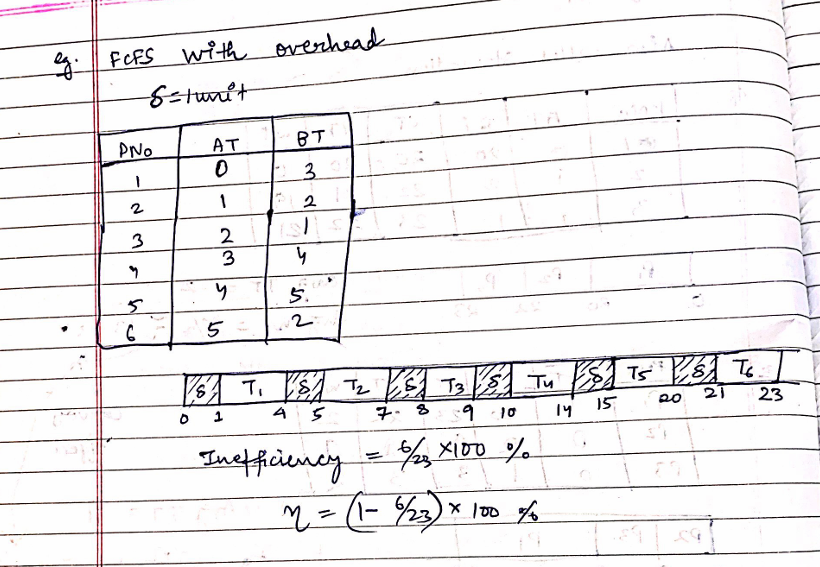 eg. FCFS with overhead
δ=1unit
PNo AT BT
1 0 3
2 1 2
3 2 1
4 3 4
5 4 5
6 5 2
δ T1 δ T2 δ T3 δ T4 δ T5 δ T6
0 1 4 5 7 8 9 10 14 15 20 21 23
Inefficiency = 6/23 ×100 %
η = (1- 6/23) × 100 %